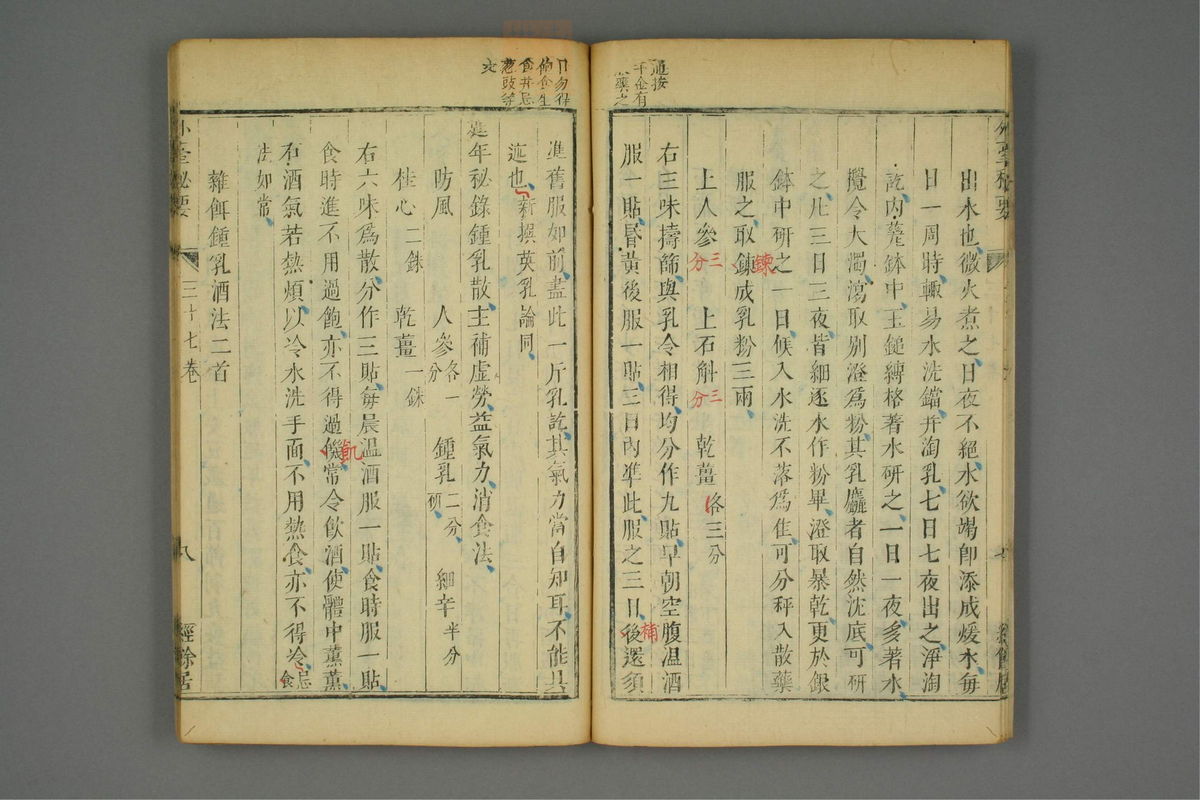 遄按
千金有
藥之
出水也微火煮之日夜不絕水欲竭卽添成煖水每
日一周時輒易水洗鐺并淘乳七日七夜出之淨淘
訖內甆鉢中玉鎚縳格著水研之一日一夜多著水
攪令大濁瀉取別澄爲粉其乳麤者自然沈底可研
之凡三日三夜皆細逐水作粉畢澄取暴乾更於銀
鉢中研之一日候入水洗不落爲佳可分秤入散藥
服之取鍊成乳粉三兩
鍊
上人參 三分 上石斛 三分 乾薑各三分
右三味擣篩與乳令相得均分作九貼早朝空腹温酒
服一貼昏黃後服一貼三日內準此服之三日後還須
補
日勿得
食生
食并忌
葱豉等
文
準舊服如前盡此一斤乳訖其氣力當自知耳不能具
述也新撰英乳論同
延年秘錄鍾乳散主補虛勞益氣力消食法
防風 人參各一分 鍾乳二分研 細辛半分
桂心二銖 乾薑一銖
右六味爲散分作三貼每晨温酒服一貼食時服一貼
食時進不用過飽亦不得過饑常令飲酒使體中薰薰
飢
右酒氣若熱煩以冷水洗手面不用熱食亦不得冷食忌
法如常
雜餌鍾乳酒法二首
外臺秘要
三十七卷
八
經餘居